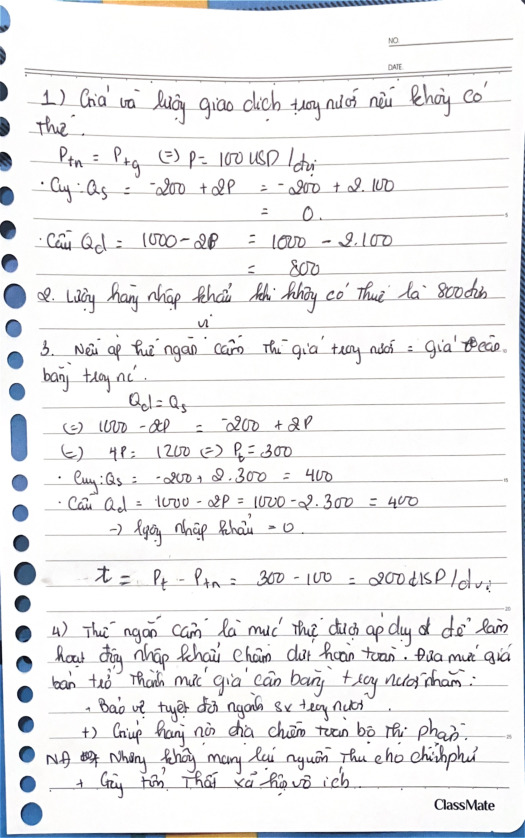 NO.
DATE.
1) Giá và lượng giao dịch trong nước nếu không có
thuế.
Ptn = Ptg (=) P = 100 USD / đvị
· Cung: Qs = -200 + 2P = -200 + 2.100
= 0.
· Cầu Qd = 1000 - 2P = 1000 - 2.100
= 800
2. Lượng hàng nhập khẩu khi không có thuế là 800 đơn
vị
3. Nếu áp thuế ngăn cấm thì giá trong nước = giá cân
bằng trong nc.
Qd = Qs
(=) 1000 - 2P = -200 + 2P
(=) 4P = 1200 (=) Pt = 300
· Cung: Qs = -200 + 2.300 = 400
· Cầu Qd = 1000 - 2P = 1000 - 2.300 = 400
-> lượng nhập khẩu = 0.
t = Pt - Ptn = 300 - 100 = 200 USD / đvị
4) Thuế ngăn cấm là mức thuế được áp dụng để làm
hoạt động nhập khẩu chấm dứt hoàn toàn. Đưa mức giá
bán trở thành mức giá cân bằng trong nước nhằm:
+ Bảo vệ tuyệt đối ngành sx trong nước.
+) Giúp hàng nội địa chiếm toàn bộ thị phần.
Nhưng không mang lại nguồn thu cho chính phủ
+ Gây tổn thất xã hội vô ích.
ClassMate